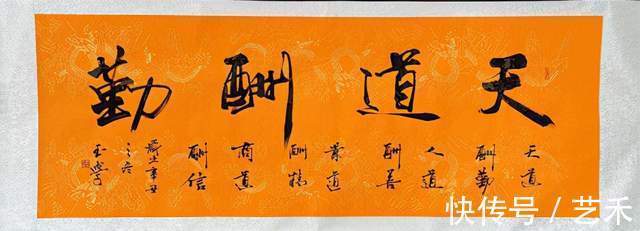 天道酬勤
天道
酬勤
人道
酬善
業道
酬精
商道
酬信
辛丑
之冬
快传号 / 艺禾